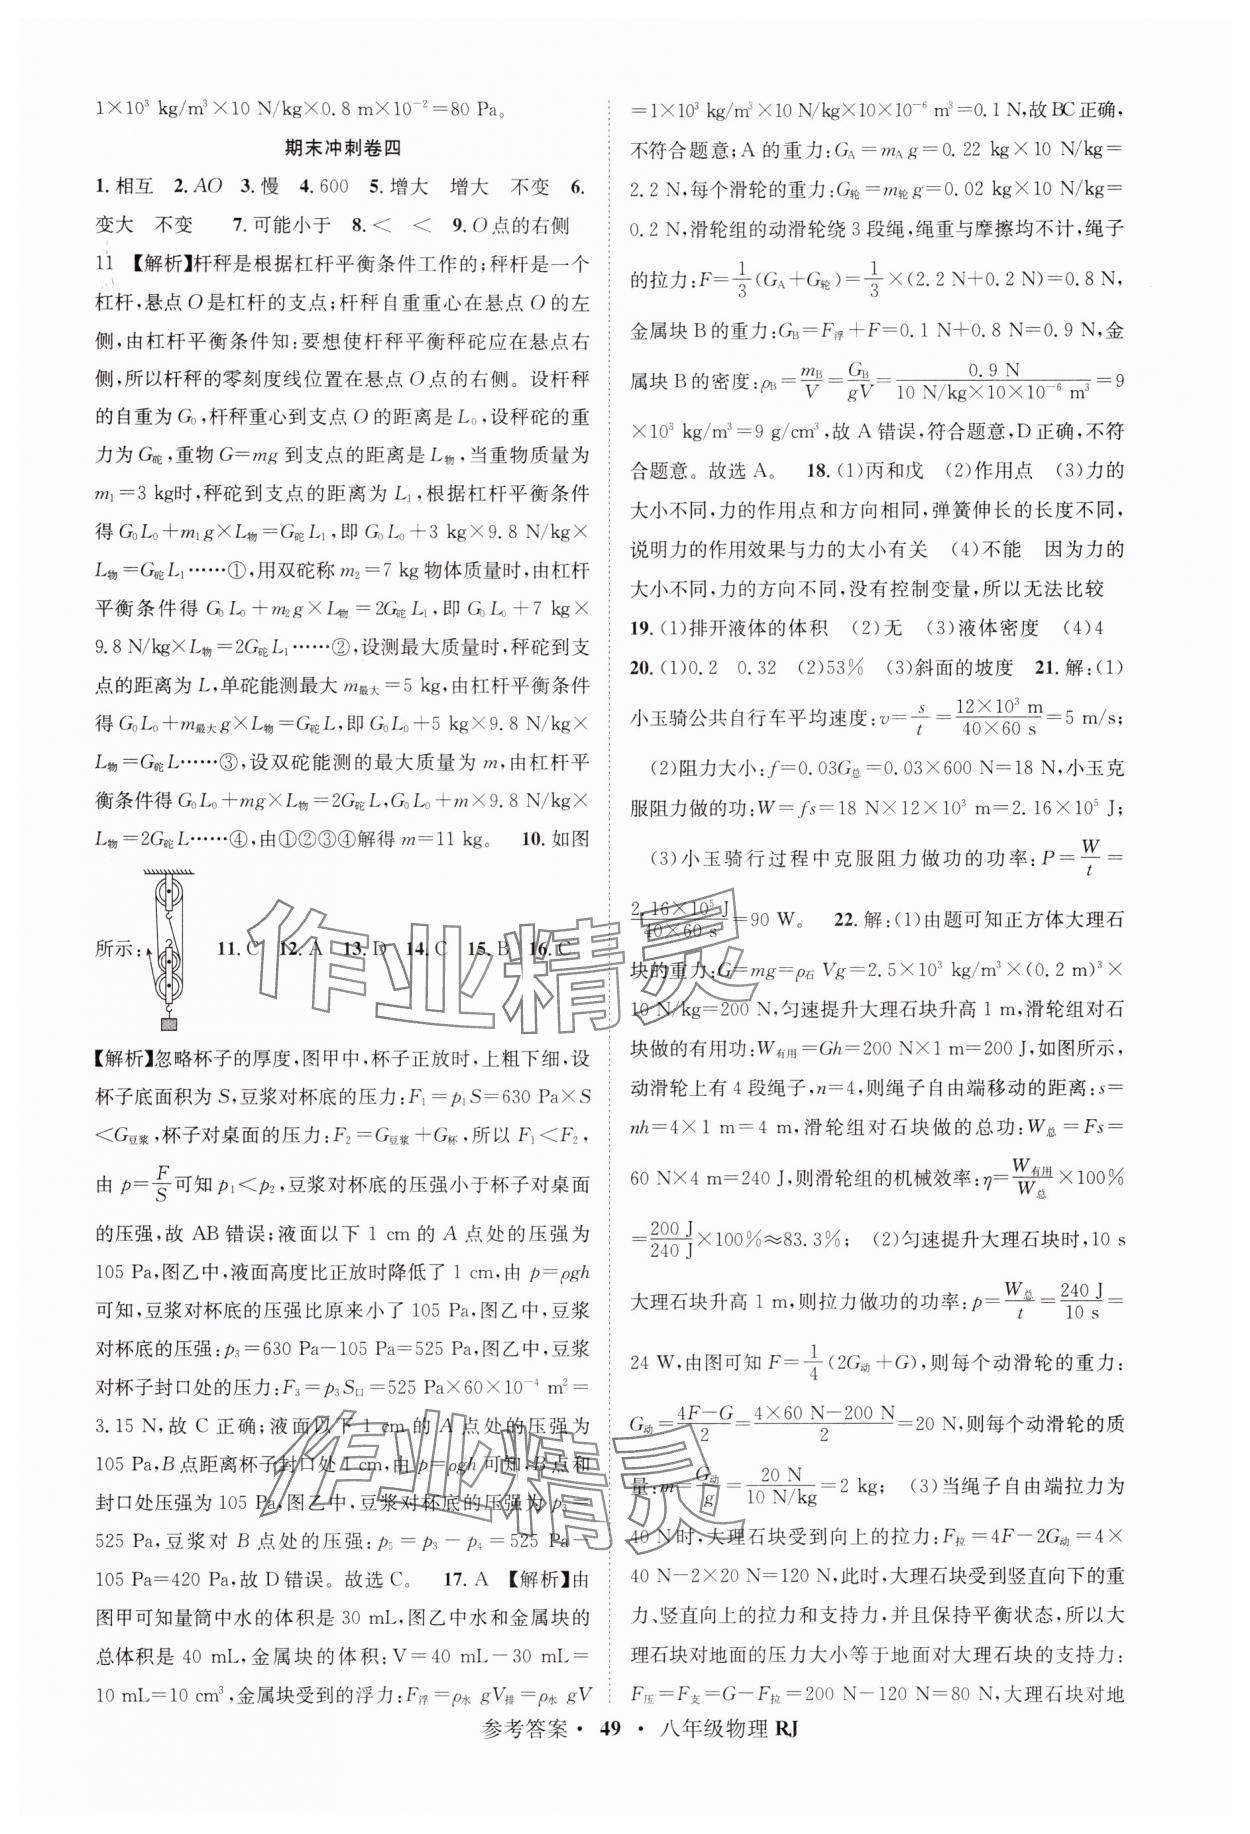 1×10³ kg/m³×10 N/kg×0.8 m×10⁻²=80 Pa。
期末冲刺卷四
1.相互 2.AO 3.慢 4.600 5.增大 增大 不变 6.
变大 不变 7.可能小于 8.< < 9.O点的右侧
11 【解析】杆秤是根据杠杆平衡条件工作的;秤杆是一个
杠杆,悬点O是杠杆的支点;杆秤自重重心在悬点O的左
侧,由杠杆平衡条件知:要想使杆秤平衡秤砣应在悬点右
侧,所以杆秤的零刻度线位置在悬点O点的右侧。设杆秤
的自重为G₀,杆秤重心到支点O的距离是L₀,设秤砣的重
力为G砣,重物G=mg到支点的距离是L物,当重物质量为
m₁=3 kg时,秤砣到支点的距离为L₁,根据杠杆平衡条件
得G₀L₀+m₁g×L物=G砣L₁,即G₀L₀+3 kg×9.8 N/kg×
L物=G砣L₁……①,用双砣称m₂=7 kg物体质量时,由杠杆
平衡条件得G₀L₀+m₂g×L物=2G砣L₁,即G₀L₀+7 kg×
9.8 N/kg×L物=2G砣L₁……②,设测最大质量时,秤砣到支
点的距离为L,单砣能测最大m最大=5 kg,由杠杆平衡条件
得G₀L₀+m最大g×L物=G砣L,即G₀L₀+5 kg×9.8 N/kg×
L物=G砣L……③,设双砣能测的最大质量为m,由杠杆平
衡条件得G₀L₀+mg×L物=2G砣L,G₀L₀+m×9.8 N/kg×
L物=2G砣L……④,由①②③④解得m=11 kg。 10.如图
所示: 11.C 12.A 13.D 14.C 15.B 16.C
【解析】忽略杯子的厚度,图甲中,杯子正放时,上粗下细,设
杯子底面积为S,豆浆对杯底的压力:F₁=p₁S=630 Pa×S
<G豆浆,杯子对桌面的压力:F₂=G豆浆+G杯,所以F₁<F₂,
由p=F/S可知p₁<p₂,豆浆对杯底的压强小于杯子对桌面
的压强,故AB错误;液面以下1 cm的A点处的压强为
105 Pa,图乙中,液面高度比正放时降低了1 cm,由p=ρgh
可知,豆浆对杯底的压强比原来小了105 Pa,图乙中,豆浆
对杯底的压强:p₃=630 Pa-105 Pa=525 Pa,图乙中,豆浆
对杯子封口处的压力:F₃=p₃S口=525 Pa×60×10⁻⁴ m²=
3.15 N,故C正确;液面以下1 cm的A点处的压强为
105 Pa,B点距离杯子封口处1 cm,由p=ρgh可知,B点和
封口处压强为105 Pa,图乙中,豆浆对杯底的压强为p₃=
525 Pa,豆浆对B点处的压强:p₅=p₃-p₄=525 Pa-
105 Pa=420 Pa,故D错误。故选C。 17.A 【解析】由
图甲可知量筒中水的体积是30 mL,图乙中水和金属块的
总体积为40 mL,金属块的体积:V=40 mL-30 mL=
10 mL=10 cm³,金属块受到的浮力:F浮=ρ水gV排=ρ水gV
=1×10³ kg/m³×10 N/kg×10×10⁻⁶ m³=0.1 N,故BC正确,
不符合题意;A的重力:G_A=m_A g=0.22 kg×10 N/kg=
2.2 N,每个滑轮的重力:G轮=m轮g=0.02 kg×10 N/kg=
0.2 N,滑轮组的动滑轮绕3段绳,绳重与摩擦均不计,绳子
的拉力:F=1/3(G_A+G轮)=1/3×(2.2 N+0.2 N)=0.8 N,
金属块B的重力:G_B=F浮+F=0.1 N+0.8 N=0.9 N,金
属块B的密度:ρ_B=m_B/V=G_B/gV=0.9 N/(10 N/kg×10×10⁻⁶ m³)=9
×10³ kg/m³=9 g/cm³,故A错误,符合题意,D正确,不符
合题意。故选A。 18.(1)丙和戊 (2)作用点 (3)力的
大小不同,力的作用点和方向相同,弹簧伸长的长度不同,
说明力的作用效果与力的大小有关 (4)不能 因为力的
大小不同,力的方向不同,没有控制变量,所以无法比较
19.(1)排开液体的体积 (2)无 (3)液体密度 (4)4
20.(1)0.2 0.32 (2)53% (3)斜面的坡度 21.解:(1)
小玉骑公共自行车平均速度:v=s/t=12×10³ m/(40×60 s)=5 m/s;
(2)阻力大小:f=0.03G总=0.03×600 N=18 N,小玉克
服阻力做的功:W=fs=18 N×12×10³ m=2.16×10⁵ J;
(3)小玉骑行过程中克服阻力做功的功率:P=W/t=
2.16×10⁵ J/(40×60 s)=90 W。 22.解:(1)由题可知正方体大理石
块的重力:G=mg=ρ石Vg=2.5×10³ kg/m³×(0.2 m)³×
10 N/kg=200 N,匀速提升大理石块升高1 m,滑轮组对石
块做的有用功:W有用=Gh=200 N×1 m=200 J,如图所示,
动滑轮上有4段绳子,n=4,则绳子自由端移动的距离:s=
nh=4×1 m=4 m,滑轮组对石块做的总功:W总=Fs=
60 N×4 m=240 J,则滑轮组的机械效率:η=W有用/W总×100%
=200 J/240 J×100%≈83.3%; (2)匀速提升大理石块时,10 s
大理石块升高1 m,则拉力做功的功率:p=W总/t=240 J/10 s=
24 W,由图可知F=1/4(2G动+G),则每个动滑轮的重力:
G动=(4F-G)/2=(4×60 N-200 N)/2=20 N,则每个动滑轮的质
量:m=G动/g=20 N/(10 N/kg)=2 kg; (3)当绳子自由端拉力为
40 N时,大理石块受到向上的拉力:F拉=4F-2G动=4×
40 N-2×20 N=120 N,此时,大理石块受到竖直向下的重
力、竖直向上的拉力和支持力,并且保持平衡状态,所以大
理石块对地面的压力大小等于地面对大理石块的支持力:
F压=F支=G-F拉=200 N-120 N=80 N,大理石块对地
参考答案 · 49 · 八年级物理 RJ
作业精灵
作业精灵